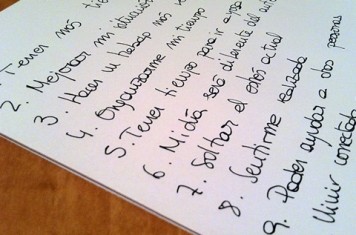 1. Tener más tie
2. Mejorar mi situación
3. Hacer un trabajo más
4. Organizarme mi tiempo
5. Tener tiempo para ir a
6. Mi día será diferente del
7. Soltar el estrés actual
8. Sentirme realizada
9. Poder ayudar a otras personas
Vivir conectada